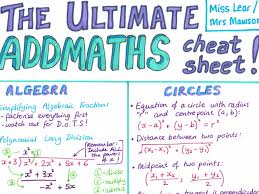 THE ULTIMATE
ADDMATHS cheat sheet!
Miss Lear /
Mrs Mawson
ALGEBRA
Simplifying Algebraic Fractions
- factorise everything first
- watch out for D.O.T.S!
Polynomial Long Division
Remember:
Include ALL
the powers
① divide
② multiply
③ subtract
CIRCLES
• Equation of a circle with radius
"r" and centrepoint (a, b):
(x-a)² + (y-b)² = r²
• Distance between two points:
• Midpoint of two points: